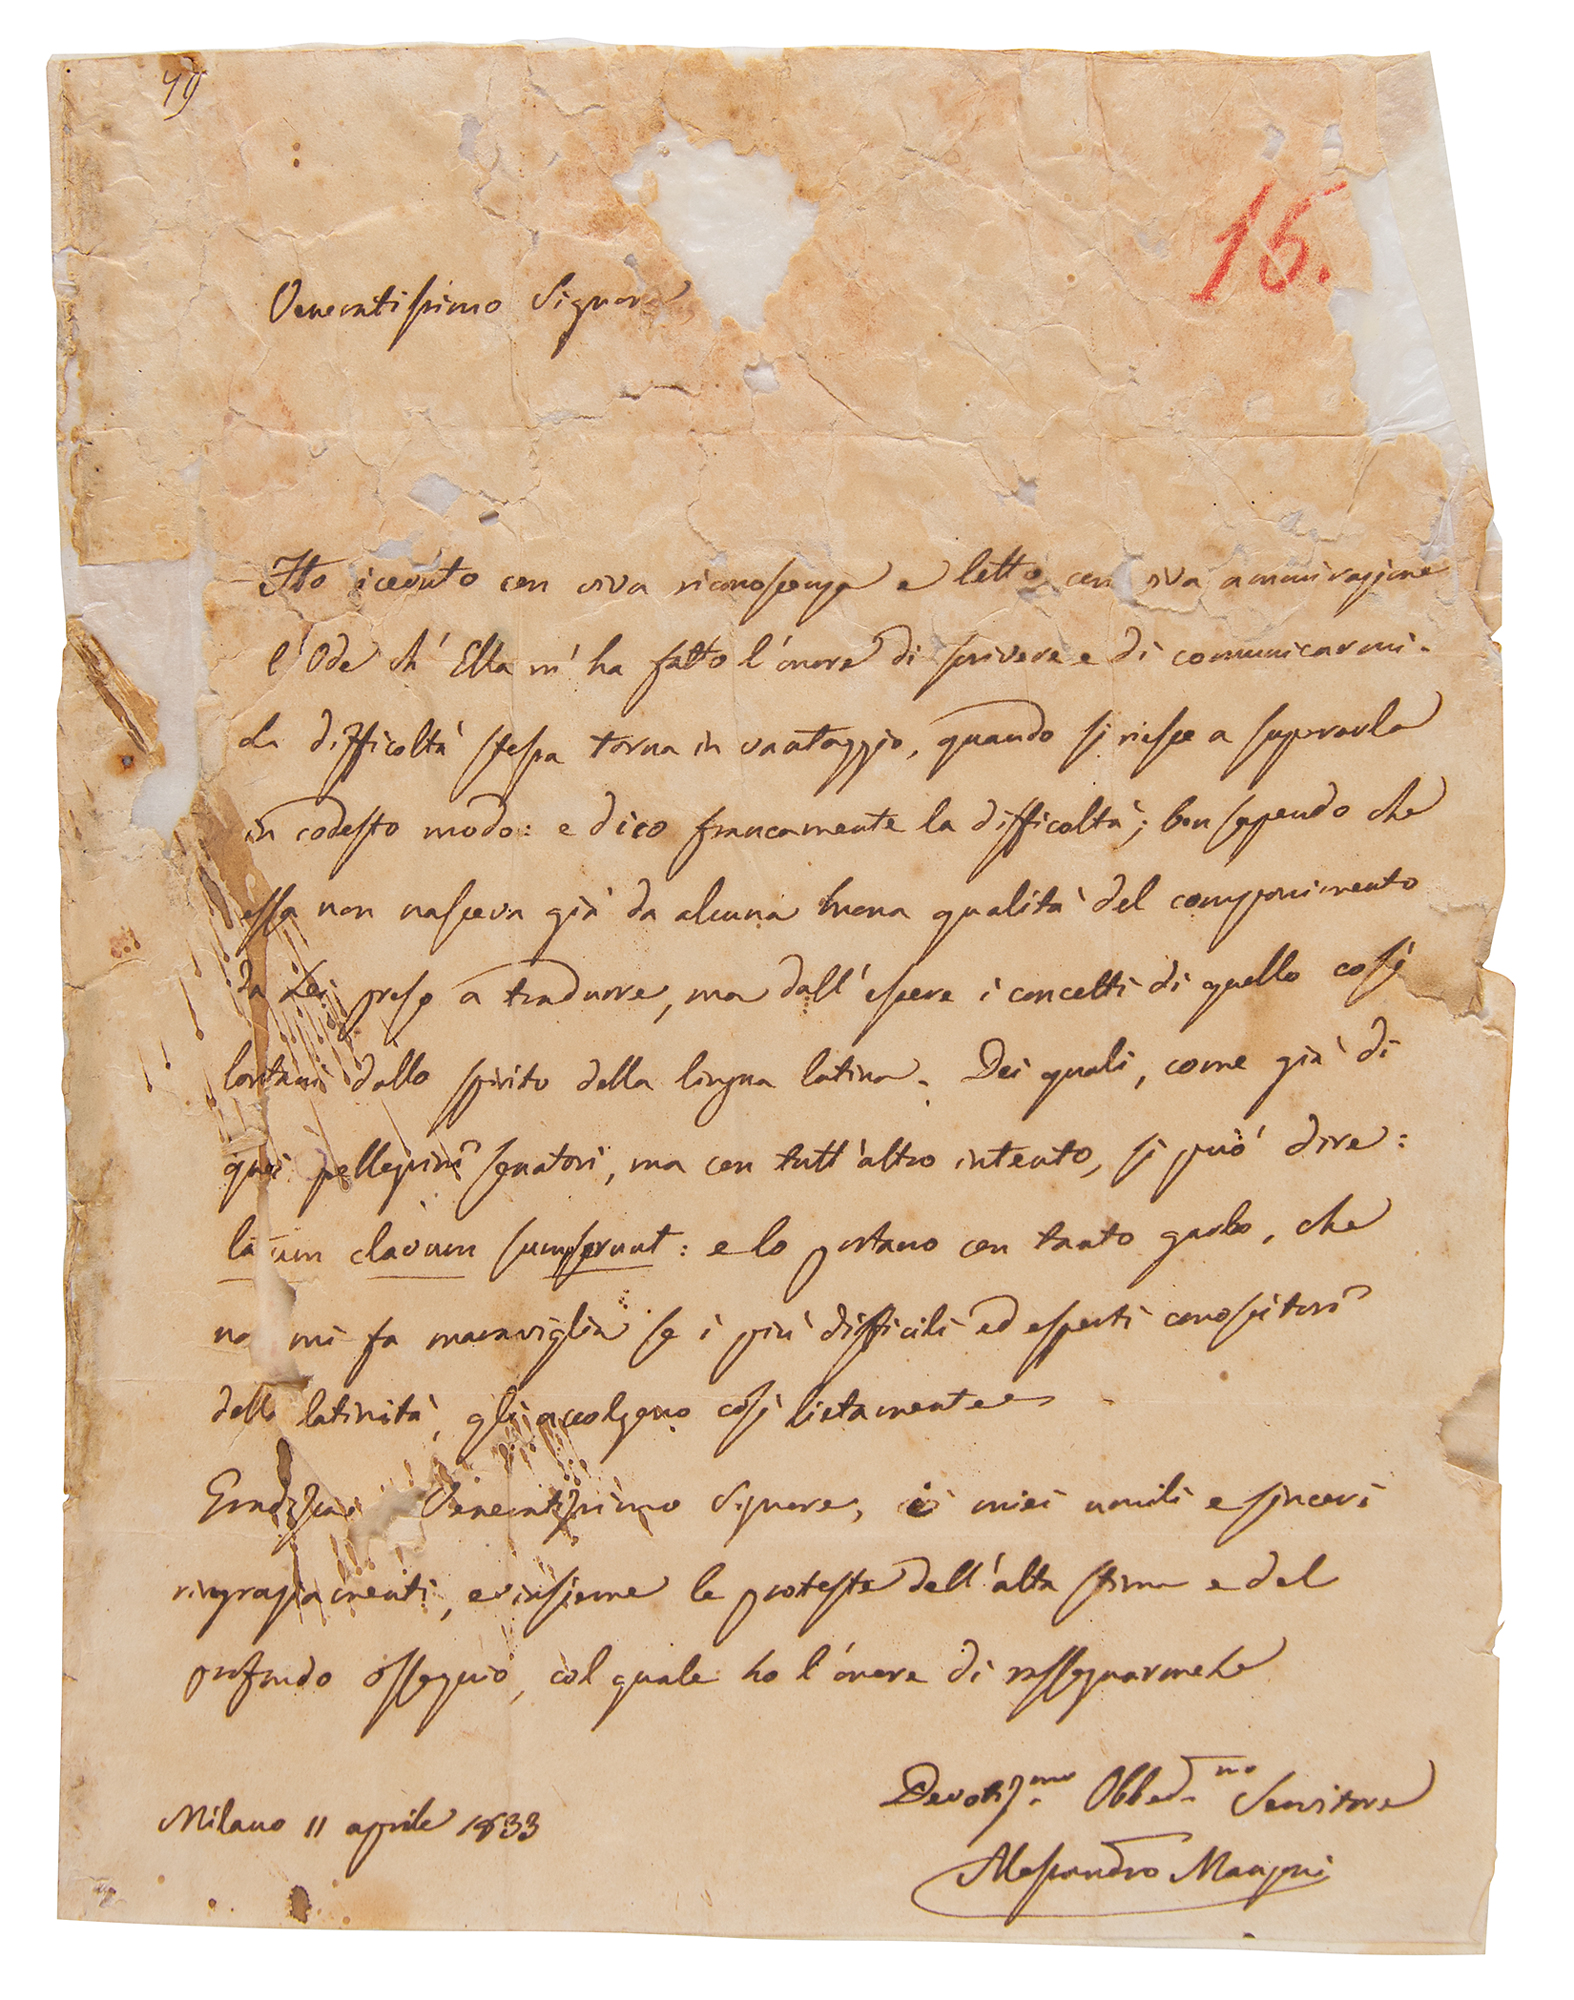 79
15.
Veneratissimo Signore
Ho icevuto con viva riconoscenza e letto con viva ammirazione
l'Ode ch' Ella m' ha fatto l'onore di scrivere e di comunicarmi.
La difficoltà stessa torna in vantaggio, quando si riesce a superarla
in codesto modo: e dico francamente la difficoltà; ben sapendo che
essa non nasceva già da alcuna buona qualità del componimento
da Lei preso a tradurre, ma dall' essere i concetti di quello così
lontani dallo spirito della lingua latina. Dei quali, come già di
quei pellegrini senatori, ma con tutt'altro intento, si può dire:
latum clavum sumserunt: e lo portano con tanto garbo, che
no mi fa maraviglia se i più difficili ed esperti conoscitori
della latinità, gli accolgono così lietamente
Gradisca Veneratissimo Signore, i miei umili e sinceri
ringraziamenti, e insieme le proteste dell'alta stima e del
profondo ossequio, col quale ho l'onore di rassegnarmele
Devotiss.mo Obbed.mo Servitore
Milano 11 aprile 1833
Alessandro Manzoni